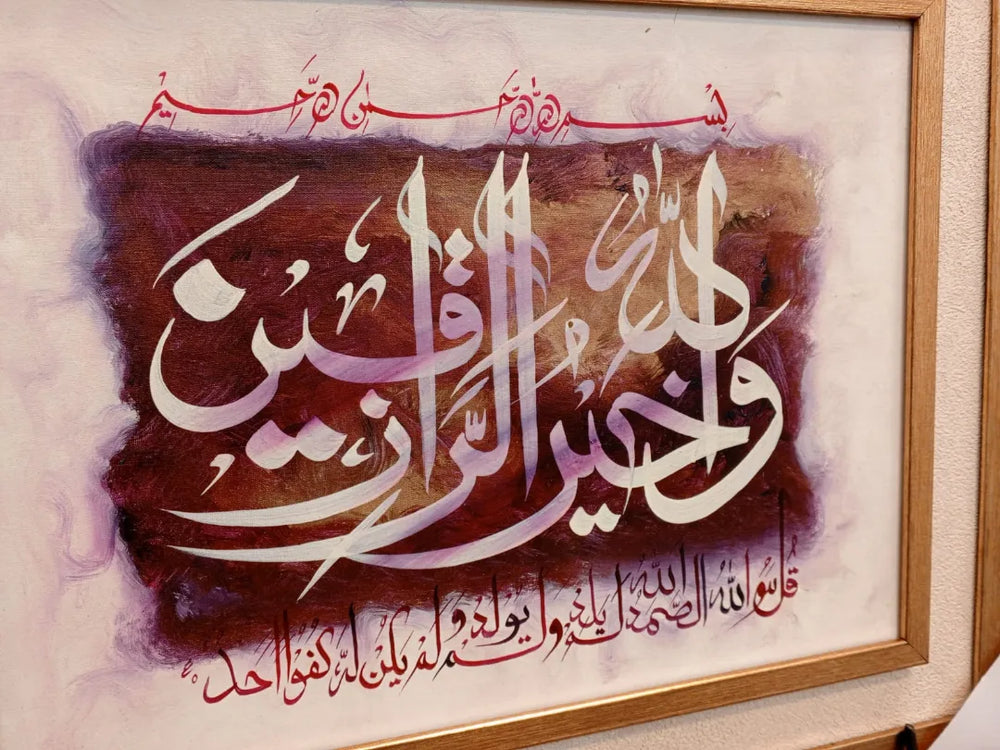 بسم الله الرحمن الرحيم
والله خير الرازقين
قل هو الله الله الصمد لم يلد ولم يولد ولم يكن له كفوا احد